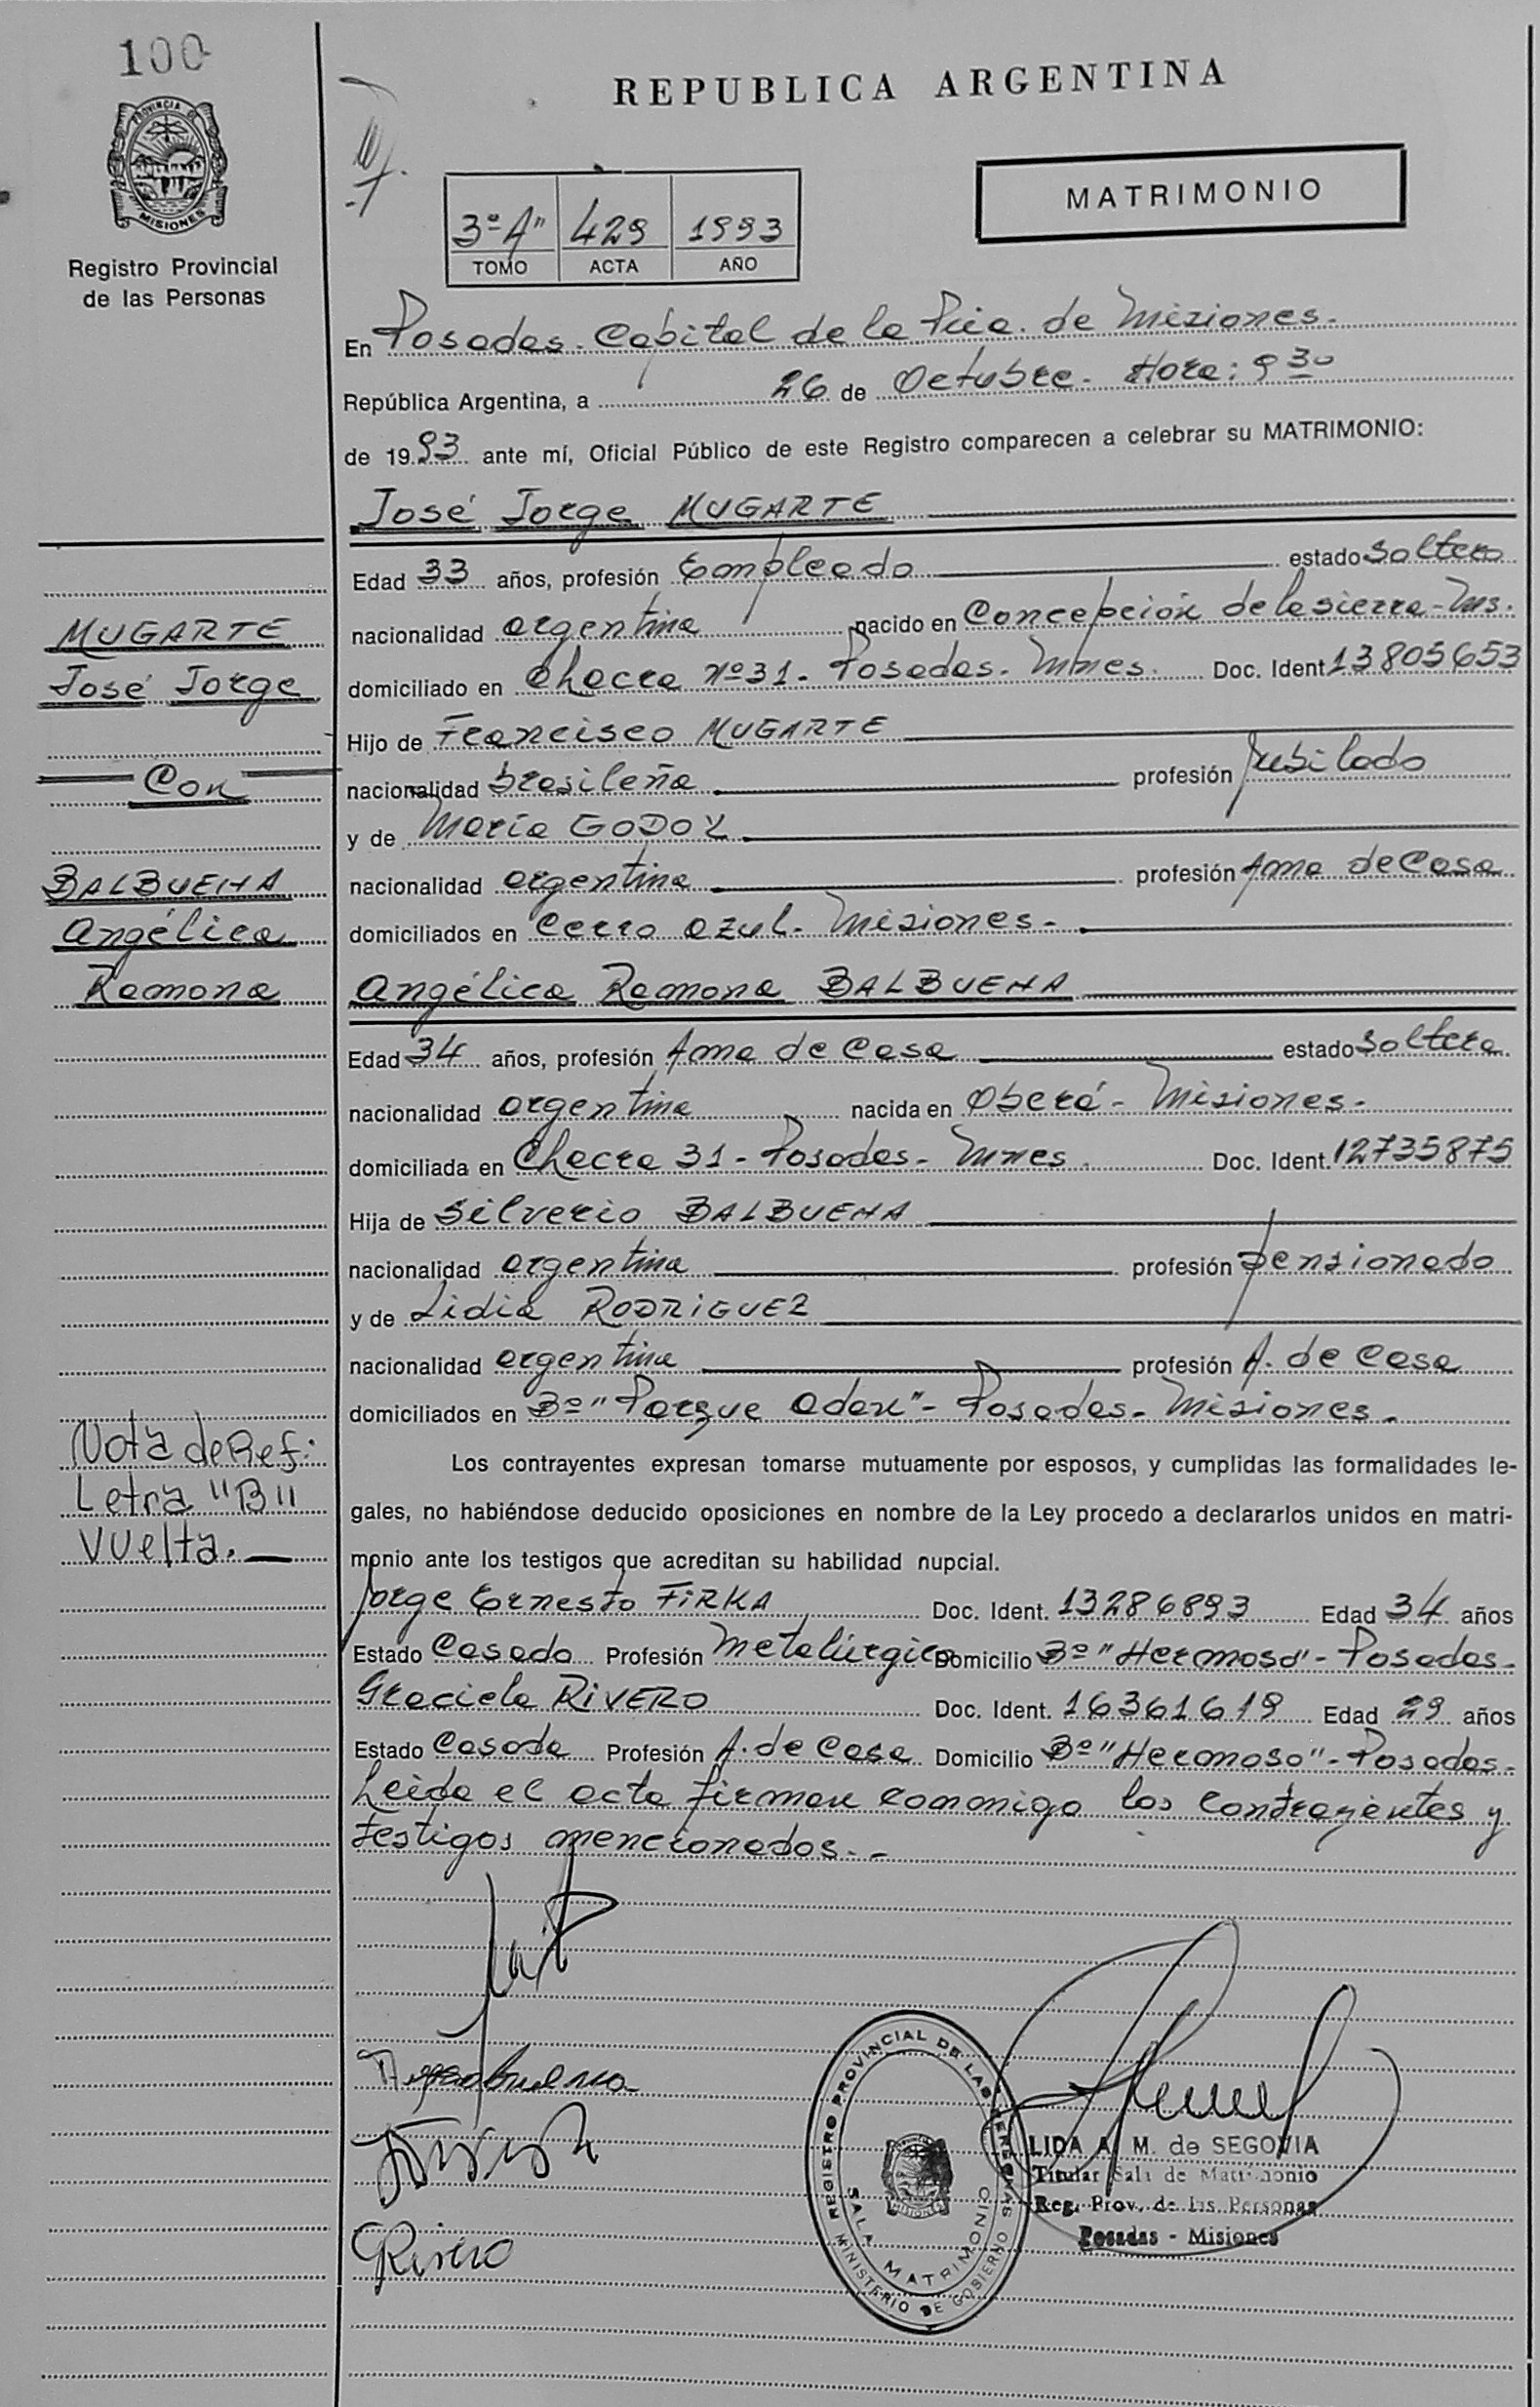 100
PROVINCIA DE
MISIONES
Registro Provincial
de las Personas
REPUBLICA ARGENTINA
MATRIMONIO
3º "A" 429 1993
TOMO ACTA AÑO
En Posadas. Capital de la Pcia. de Misiones.
República Argentina, a 26 de Octubre. Hora: 9 30
de 1993 ante mí, Oficial Público de este Registro comparecen a celebrar su MATRIMONIO:
José Jorge MUGARTE
Edad 33 años, profesión Empleado estado Soltero
nacionalidad argentina nacido en Concepción de la sierra - Mns.
domiciliado en Chacra Nº 31. Posadas. Mnes. Doc. Ident 13805653
Hijo de Francisco MUGARTE
nacionalidad brasileña profesión jubilado
y de María GODOY
nacionalidad argentina profesión Ama de Casa
domiciliados en Cerro azul. Misiones-
Angélica Ramona BALBUENA
Edad 34 años, profesión Ama de Casa estado Soltera
nacionalidad argentina nacida en Oberá - Misiones-
domiciliada en Chacra 31 - Posadas - Mnes. Doc. Ident. 12735875
Hija de Silverio BALBUENA
nacionalidad argentina profesión pensionado
y de Lidia RODRIGUEZ
nacionalidad argentina profesión A. de Casa
domiciliados en Bº "Parque Aden" - Posadas - Misiones.
Los contrayentes expresan tomarse mutuamente por esposos, y cumplidas las formalidades le-
gales, no habiéndose deducido oposiciones en nombre de la Ley procedo a declararlos unidos en matri-
monio ante los testigos que acreditan su habilidad nupcial.
Jorge Ernesto FIRKA Doc. Ident. 13286893 Edad 34 años
Estado Casado Profesión Metalúrgico Domicilio Bº "Hermoso" - Posadas-
Graciela RIVERO Doc. Ident. 16361619 Edad 29 años
Estado Casada Profesión A. de Casa Domicilio Bº "Hermoso" - Posadas-
Leída el acta firman conmigo los contrayentes y
testigos mencionados. -
MUGARTE
José Jorge
Con
BALBUENA
Angélica
Ramona
Nota de Ref:
Letra "B"
Vuelta.
Rivero
REGISTRO PROVINCIAL DE LAS PERSONAS
SALA MATRIMONIO
MINISTERIO DE GOBIERNO
LIDA A. M. de SEGOVIA
Titular Sala de Matrimonio
Reg. Prov. de las Personas
Posadas - Misiones